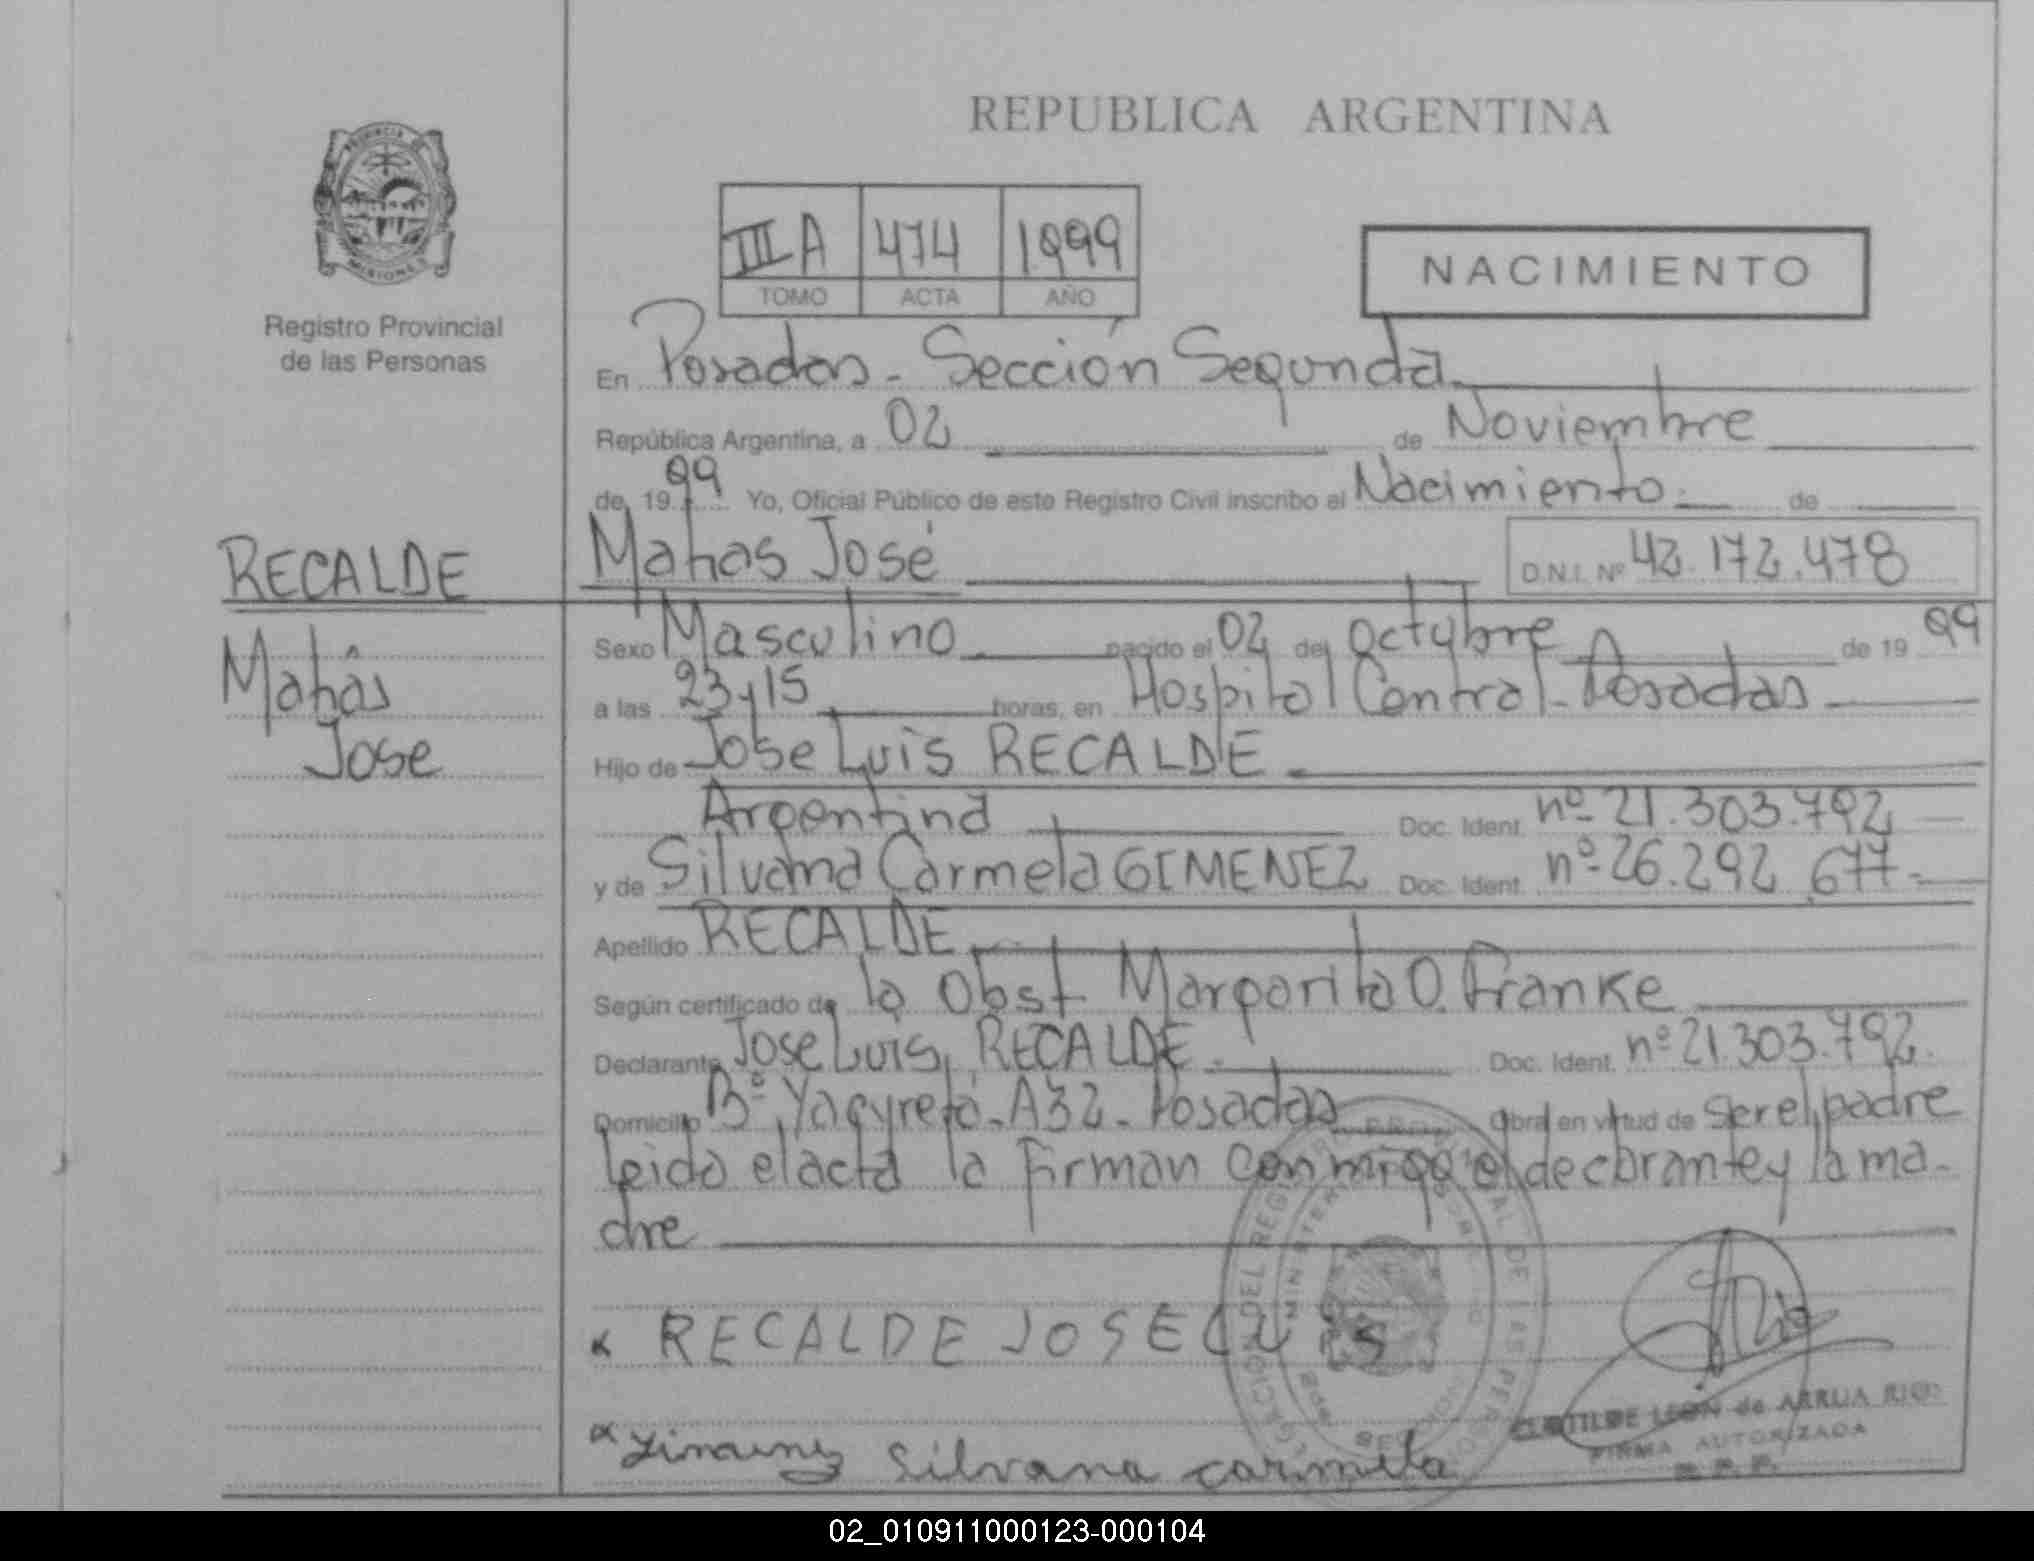 REPUBLICA ARGENTINA
PROVINCIA DE
MISIONES
Registro Provincial
de las Personas
III A 474 1999
TOMO ACTA AÑO
NACIMIENTO
En Posadas - Sección Segunda
República Argentina, a 02 de Noviembre
de 1999 Yo, Oficial Público de este Registro Civil inscribo el Nacimiento de
RECALDE
Matias José
D.N.I. Nº 42.172.478
Matias
Jose
Sexo Masculino nacido el 02 de octubre de 1999
a las 23 y 15 horas, en Hospital Central - Posadas
Hijo de Jose Luis RECALDE
Argentina Doc. Ident. nº 21.303.792
y de Silvana Carmela GIMENEZ Doc. Ident. nº 26.292.677.-
Apellido RECALDE
Según certificado de la Obst Margarita O. Franke
Declarante Jose Luis RECALDE. Doc. Ident. nº 21.303.792.
Domicilio Bº Yacyretá - A32 - Posadas Obra en virtud de ser el padre
leido el acta la firman conmigo el declarante y la ma-
dre
RECALDE JOSE LUIS
Silvana carmela
CLOTILDE LEON de ARRUA RIOS
FIRMA AUTORIZADA
R. P. P.
02_010911000123-000104